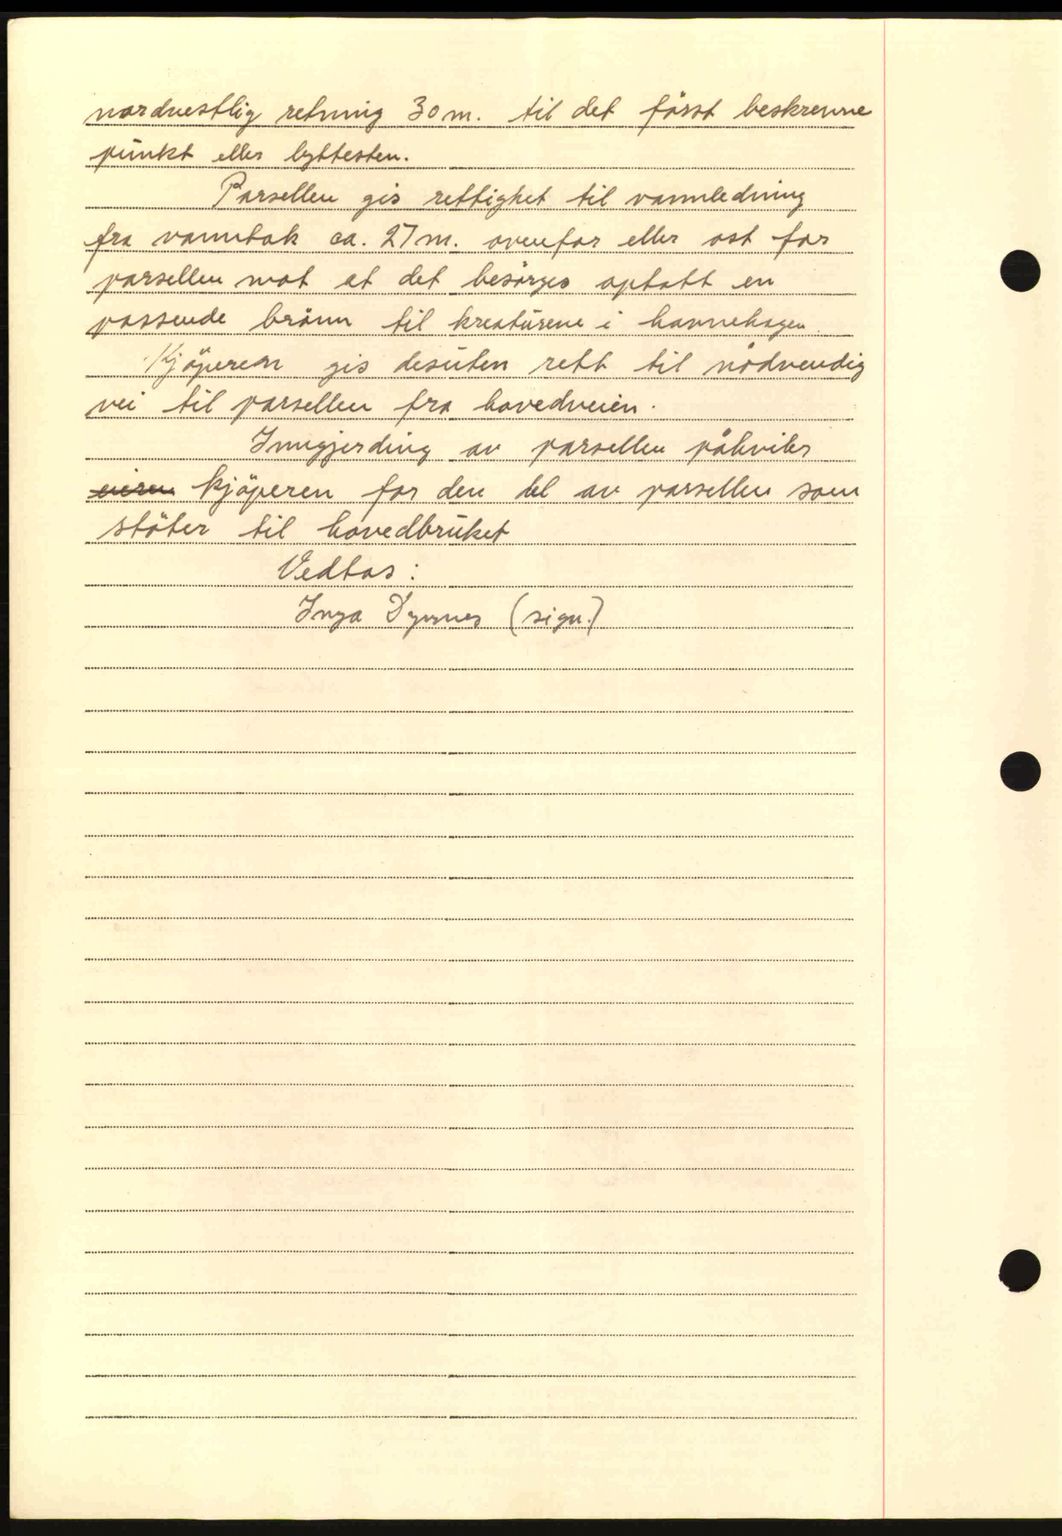 nordvestlig retning 30 m. til det först beskrevne
punkt eller byttesten.
Parsellen gis rettighet til vannledning
fra vanntak ca. 27 m. ovenfor eller öst for
parsellen mot at det besörges optatt en
passende brönn til kreaturene i havnehagen.
Kjöperen gis desuten rett til nödvendig
vei til parsellen fra hovedveien.
Inngjerding av parsellen påhviler
eieren kjöperen for den del av parsellen som
stöter til hovedbruket
Vedtas:
Inga Dyrnes (sign.)